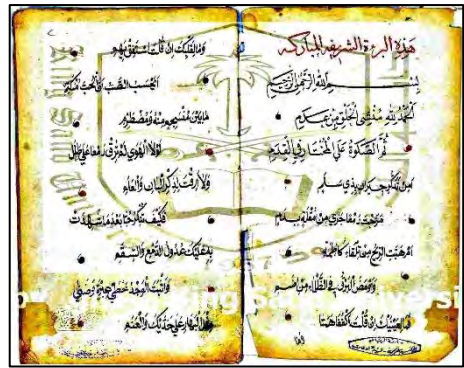 هذه البردة الشريفة المباركة
بسم الله الرحمن الرحيم
الحمد لله منشي الخلق من عدم
ثم الصلوة على المختار في القدم
امن تذكر جيران بذي سلم
مزجت دمعا جرى من مقلة بدم
ام هبت الريح من تلقاء كاظمة
واومض البرق في الظلماء من اضم
فما لعينيك ان قلت اكففا همتا
وما لقلبك ان قلت استفق يهم
ايحسب الصب ان الحب منكتم
ما بين منسجم منه ومضطرم
لولا الهوى لم ترق دمعا على طلل
ولا ارقت لذكر البان والعلم
فكيف تنكر حبا بعد ما شهدت
به عليك عدول الدمع والسقم
واثبت الوجد خطي عبرة وضنى
مثل البهار على خديك والعنم